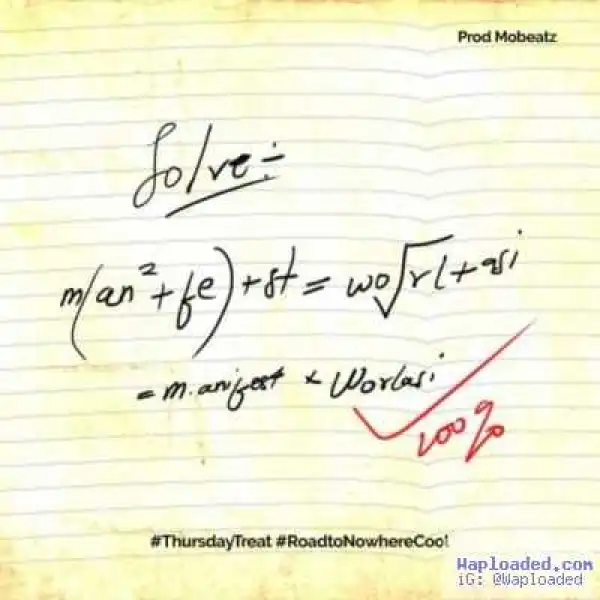 Prod Mobeatz
Solve:-
m(an²+fe)+st = wo√rl+asi
= m.anifest x Worlasi
100%
#ThursdayTreat #RoadtoNowhereCool
Waploaded.com
iG: @Waploaded